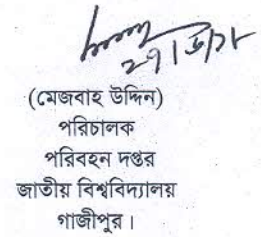 (মেজবাহ উদ্দিন)
পরিচালক
পরিবহন দপ্তর
জাতীয় বিশ্ববিদ্যালয়
গাজীপুর।